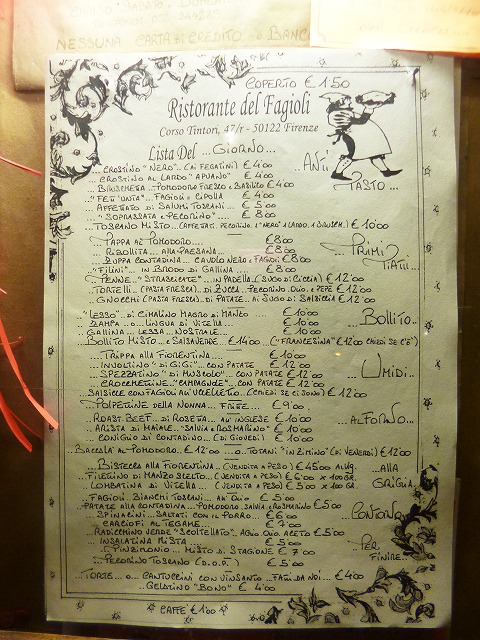 CHIUSO SABATO E DOMENICA
NESSUNA CARTA DI CREDITO O BANCO
COPERTO € 1'50
Ristorante del Fagioli
Corso Tintori, 47/r - 50122 Firenze
Lista Del ... GIORNO...
... ANTI
PASTO...
... CROSTINO "NERO".. (AI FEGATINI) € 4'00
CROSTINO AL LARDO "APUANO" € 4'00
... BRUSCHETTA.. POMODORO FRESCO E BASILICO € 4'00
.. "FETT'UNTA"... FAGIOLI E CIPOLLA € 4'00
... AFFETTATO DI SALUMI TOSCANI ... € 5'00
... "SOPRASSATA E PECORINO"... € 8'00
... TOSCANO MISTO..
€ 10'00
PAPPA AL POMODORO... € 8'00
... RIBOLLITA... ALLA PAESANA... € 8'00
... ZUPPA CONTADINA.. CAVOLO NERO E FAGIOLI € 8'00
PRIMI
PIATTI...
.. "FILINI"... IN BRODO DI GALLINA ... € 8'00
... PENNE.. "STRASCICATE"... IN PADELLA (SUGO DI CICCIA) € 12'00
.. TORTELLI.. (PASTA FRESCA).. DI ZUCCA.. PECORINO OLIO E PEPE € 12'00
.. GNOCCHI (PASTA FRESCA) DI PATATE.. AL SUGO DI SALSICCIA € 12'00
"LESSO".. DI CIMALINO MAGRO DI MANZO .... € 10'00
... BOLLITO...
ZAMPA ..O.. LINGUA DI VITELLA... € 10'00
.. GALLINA ... LESSA ... NOSTRALE... € 10'00
.. BOLLITO MISTO.. E SALSAVERDE.. € 14'00 .. ("FRANCESINA" € 12'00 CHIEDI SE C'È)
... TRIPPA ALLA FIORENTINA... € 10'00
... UMIDI...
... INVOLTINO "DI GIGI".. CON PATATE € 12'00
... SPEZZATINO "DI MUSCOLO".. CON PATATE € 12'00
... CROCCHETTINE.. CON PATATE € 12'00
... SALSICCE CON FAGIOLI ALL'UCCELLETTO.. (CHIEDI SE CI SONO) € 12'00
... POLPETTINE DELLA NONNA.. FRITTE ... € 9'00.
... AL FORNO...
.. ROAST.BEEF.. DI ROSETTA.. ALL'INGLESE € 10'00
.. ARISTA DI MAIALE.. "SALVIA E ROSMARINO" € 10'00
... CONIGLIO DI CONTADINO... (DI GIOVEDI) € 10'00
BACCALÀ AL POMODORO.. € 12'00 ...O... TOTANI "IN ZIMINO" (DI VENERDI) € 12'00
... BISTECCA ALLA FIORENTINA.. (VENDITA A PESO) € 45'00 AL KG.
... ALLA
GRIGLIA...
... FILETTINO DI MANZO SCELTO.. (VENDITA A PESO) € 6'00 x 100 GR.
.. LOMBATINA DI VITELLA.. (VENDITA A PESO) € 5'00 x 100 GR.
.. FAGIOLI.. BIANCHI TOSCANI... ALL'OLIO € 5'00
.. PATATE ALLA CONTADINA.. POMODORO SALVIA E ROSMARINO € 5'00
CONTORNI...
... SPINACINI.. SALTATI CON IL PORRO.. € 6'00
... CARCIOFI AL TEGAME... € 7'00
.. RADICCHIO VERDE "SCOLTELLATO".. AGLIO OLIO ACETO € 5'00
... INSALATINA MISTA... € 5'00
... PINZIMONIO... MISTO DI STAGIONE € 7'00
... PER
FINIRE...
... PECORINO TOSCANO (D.O.P.) € 5'00
.. TORTE.. O.. CANTUCCINI CON VINSANTO.. FATTI DA NOI... € 4'00
... GELATINO "BONO" € 4'00
CAFFÈ € 1'00